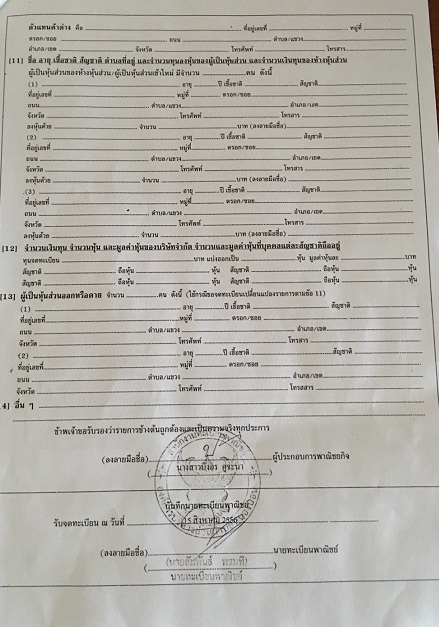 ตัวแทนค้าต่าง คือ ที่อยู่เลขที่ หมู่ที่
ตรอก/ซอย ถนน ตำบล/แขวง
อำเภอ/เขต จังหวัด โทรศัพท์ โทรสาร
[11] ชื่อ อายุ เชื้อชาติ สัญชาติ ตำบลที่อยู่ และจำนวนทุนลงหุ้นของผู้เป็นหุ้นส่วน และจำนวนเงินทุนของห้างหุ้นส่วน
ผู้เป็นหุ้นส่วนของห้างหุ้นส่วน/ผู้เป็นหุ้นส่วนเข้าใหม่ มีจำนวน คน ดังนี้
(1) อายุ ปี เชื้อชาติ สัญชาติ
ที่อยู่เลขที่ หมู่ที่ ตรอก/ซอย
ถนน ตำบล/แขวง อำเภอ/เขต
จังหวัด โทรศัพท์ โทรสาร
ลงหุ้นด้วย จำนวน บาท (ลงลายมือชื่อ)
(2) อายุ ปี เชื้อชาติ สัญชาติ
ที่อยู่เลขที่ หมู่ที่ ตรอก/ซอย
ถนน ตำบล/แขวง อำเภอ/เขต
จังหวัด โทรศัพท์ โทรสาร
ลงหุ้นด้วย จำนวน บาท (ลงลายมือชื่อ)
(3) อายุ ปี เชื้อชาติ สัญชาติ
ที่อยู่เลขที่ หมู่ที่ ตรอก/ซอย
ถนน ตำบล/แขวง อำเภอ/เขต
จังหวัด โทรศัพท์ โทรสาร
ลงหุ้นด้วย จำนวน บาท (ลงลายมือชื่อ)
[12] จำนวนเงินทุน จำนวนหุ้น และมูลค่าหุ้นของบริษัทจำกัด จำนวนและมูลค่าหุ้นที่บุคคลแต่ละสัญชาติถืออยู่
ทุนจดทะเบียน บาท แบ่งออกเป็น หุ้น มูลค่าหุ้นละ บาท
สัญชาติ ถือหุ้น หุ้น สัญชาติ ถือหุ้น หุ้น
สัญชาติ ถือหุ้น หุ้น สัญชาติ ถือหุ้น หุ้น
[13] ผู้เป็นหุ้นส่วนออกหรือตาย จำนวน คน ดังนี้ (ใช้กรณีขอจดทะเบียนเปลี่ยนแปลงรายการตามข้อ 11)
(1) อายุ ปี เชื้อชาติ สัญชาติ
ที่อยู่เลขที่ หมู่ที่ ตรอก/ซอย
ถนน ตำบล/แขวง อำเภอ/เขต
จังหวัด โทรศัพท์ โทรสาร
(2) อายุ ปี เชื้อชาติ สัญชาติ
ที่อยู่เลขที่ หมู่ที่ ตรอก/ซอย
ถนน ตำบล/แขวง อำเภอ/เขต
จังหวัด โทรศัพท์ โทรสาร
4] อื่น ๆ
ข้าพเจ้าขอรับรองว่ารายการข้างต้นถูกต้องและเป็นความจริงทุกประการ
(ลงลายมือชื่อ) ผู้ประกอบการพาณิชยกิจ
บันทึกนายทะเบียนพาณิชย์
รับจดทะเบียน ณ วันที่ 15 สิงหาคม 2556
(ลงลายมือชื่อ) นายทะเบียนพาณิชย์
นายทะเบียนพาณิชย์